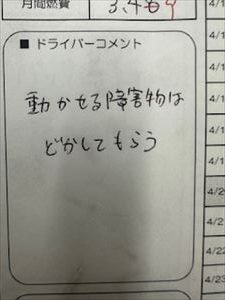 月間燃費
■ ドライバーコメント
動かせる障害物は
どかしてもらう
4/1
4/1
4/1
4/1
4/20
4/2
4/22
4/23